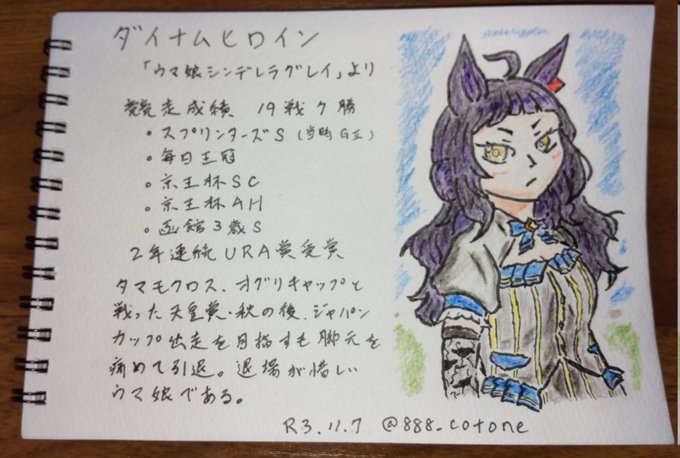 ダイナムヒロイン
「ウマ娘シンデレラグレイ」より
競走成績 19戦7勝
・スプリンターズS(当時GⅡ)
・毎日王冠
・京王杯SC
・京王杯AH
・函館3歳S
2年連続URA賞受賞
タマモクロス、オグリキャップと
戦った天皇賞・秋の後、ジャパン
カップ出走を目指すも脚元を
痛めて引退。退場が惜しい
ウマ娘である。
R3.11.7 @888_cotone